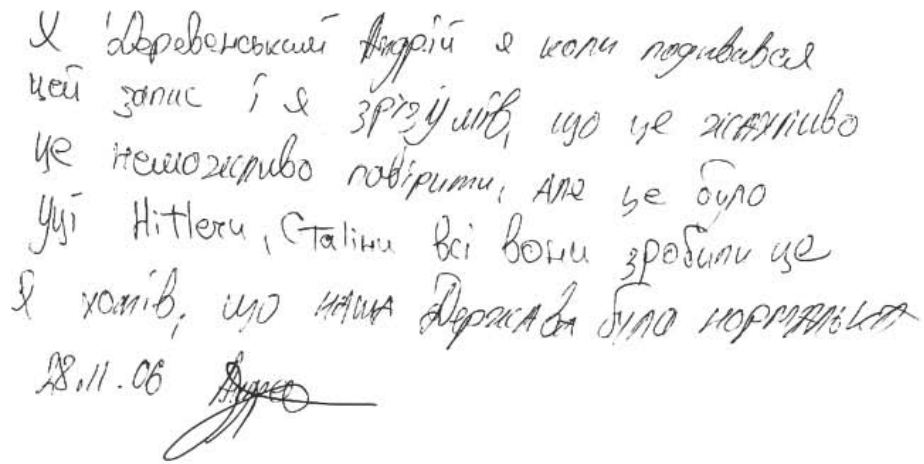 Я Деревенський Андрій я коли подивався
цей запис і я зрізумів, що це жахливо
це неможливо повірити, але це було
Уці Hitlerи, Сталіни всі вони зробили це
Я хотів, що наша Держава було нормальна
28.11.06